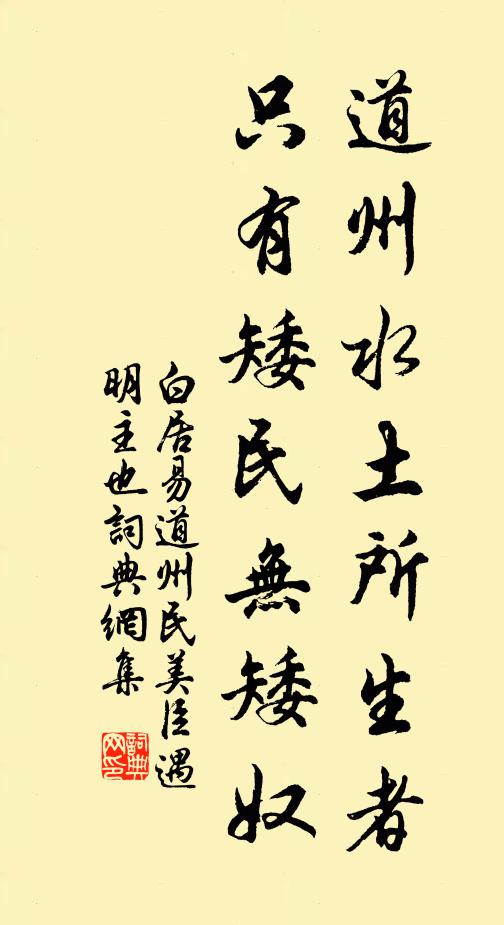 道州水土所生者
只有矮民無矮奴
白居易道州民美臣遇
明主也詞典網集
詞典網印